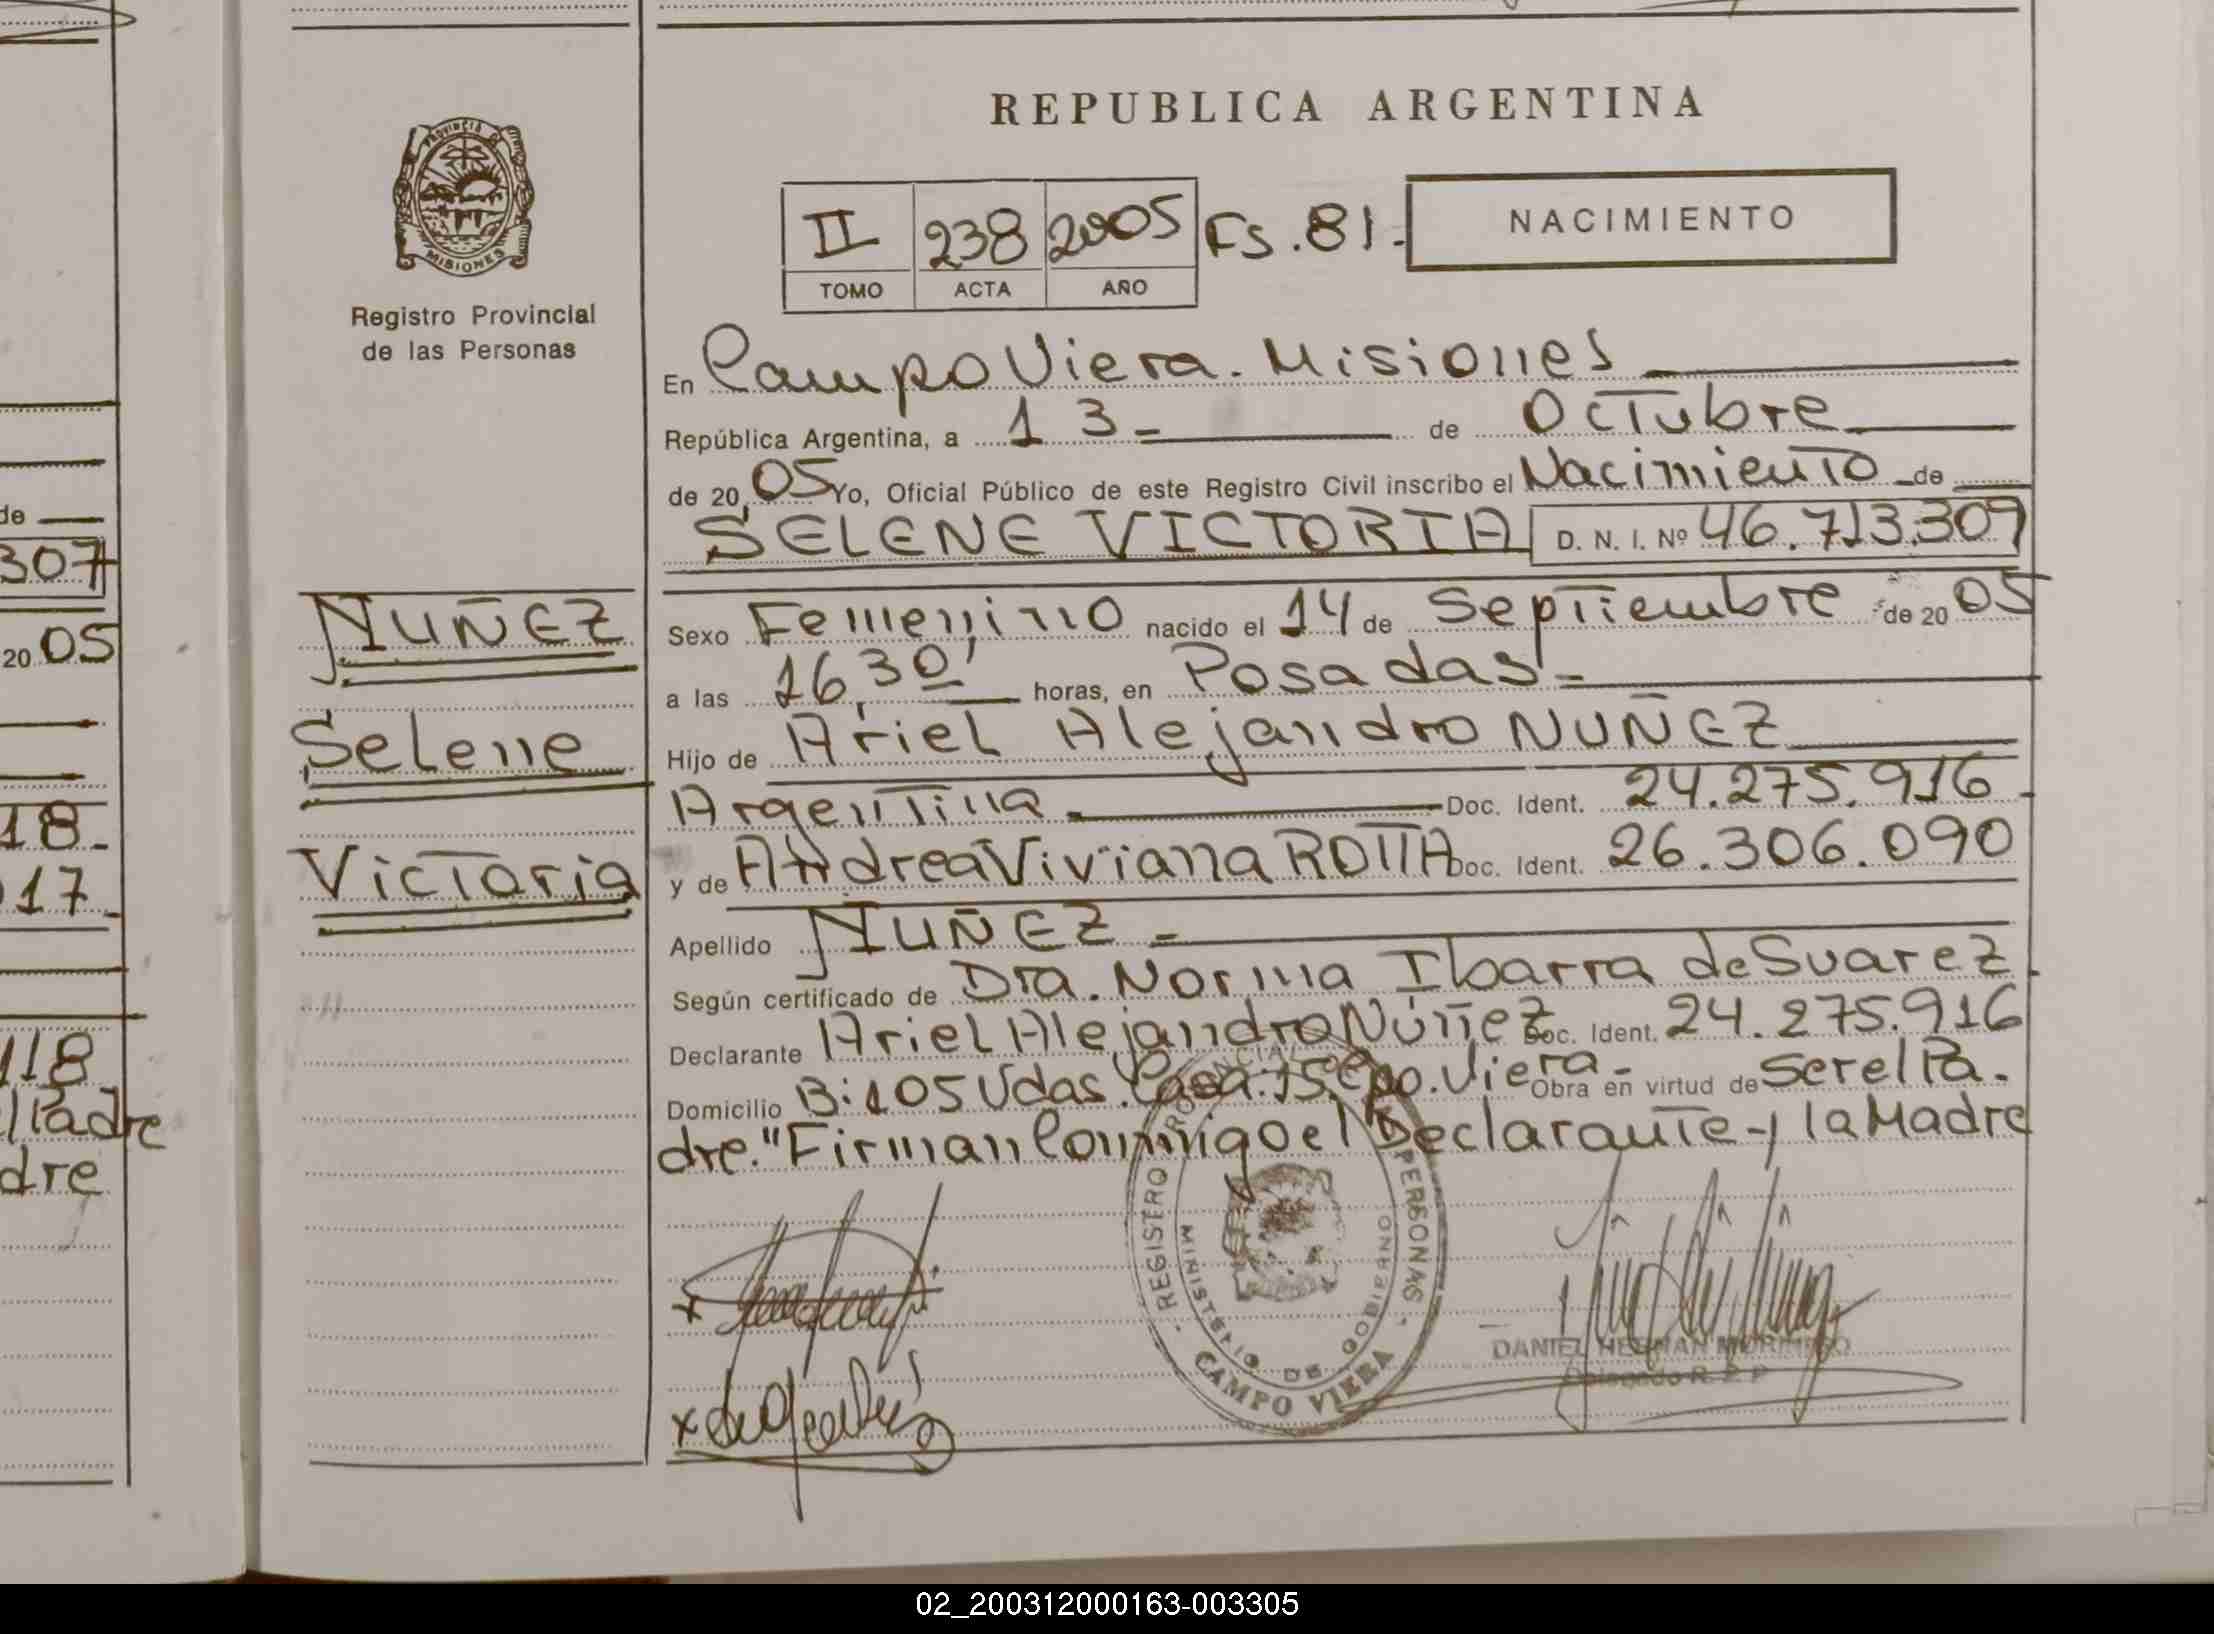 REPUBLICA ARGENTINA
PROVINCIA DE
MISIONES
Registro Provincial
de las Personas
II 238 2005 Fs. 81.-
TOMO ACTA AÑO
NACIMIENTO
En Campo Viera. Misiones
República Argentina, a 13- de Octubre
de 20 05 Yo, Oficial Público de este Registro Civil inscribo el Nacimiento de
SELENE VICTORIA D. N. I. Nº 46.713.309
NUÑEZ
Selene
Victoria
Sexo Femenino nacido el 14 de Septiembre de 20 05
a las 16,30' horas, en Posadas-
Hijo de Ariel Alejandro NUÑEZ
Argentina Doc. Ident. 24.275.916-
y de Andrea Viviana ROTTA Doc. Ident. 26.306.090
Apellido NUÑEZ-
Según certificado de Dra. Norma Ibarra de Suarez.
Declarante Ariel Alejandro Núñez Doc. Ident. 24.275.916
Domicilio B:105 Vdas. Casa:15. Cpo. Viera- Obra en virtud de Ser el Pa-
dre." Firman Conmigo el Declarante y la Madre
REGISTRO PROVINCIAL PERSONAS
MINISTERIO DE GOBIERNO
CAMPO VIERA
DANIEL HERNAN MORINIGO
Delegado R. P. P.
de
307
20 05
18-
17-
118
el Padre
dre
02_200312000163-003305